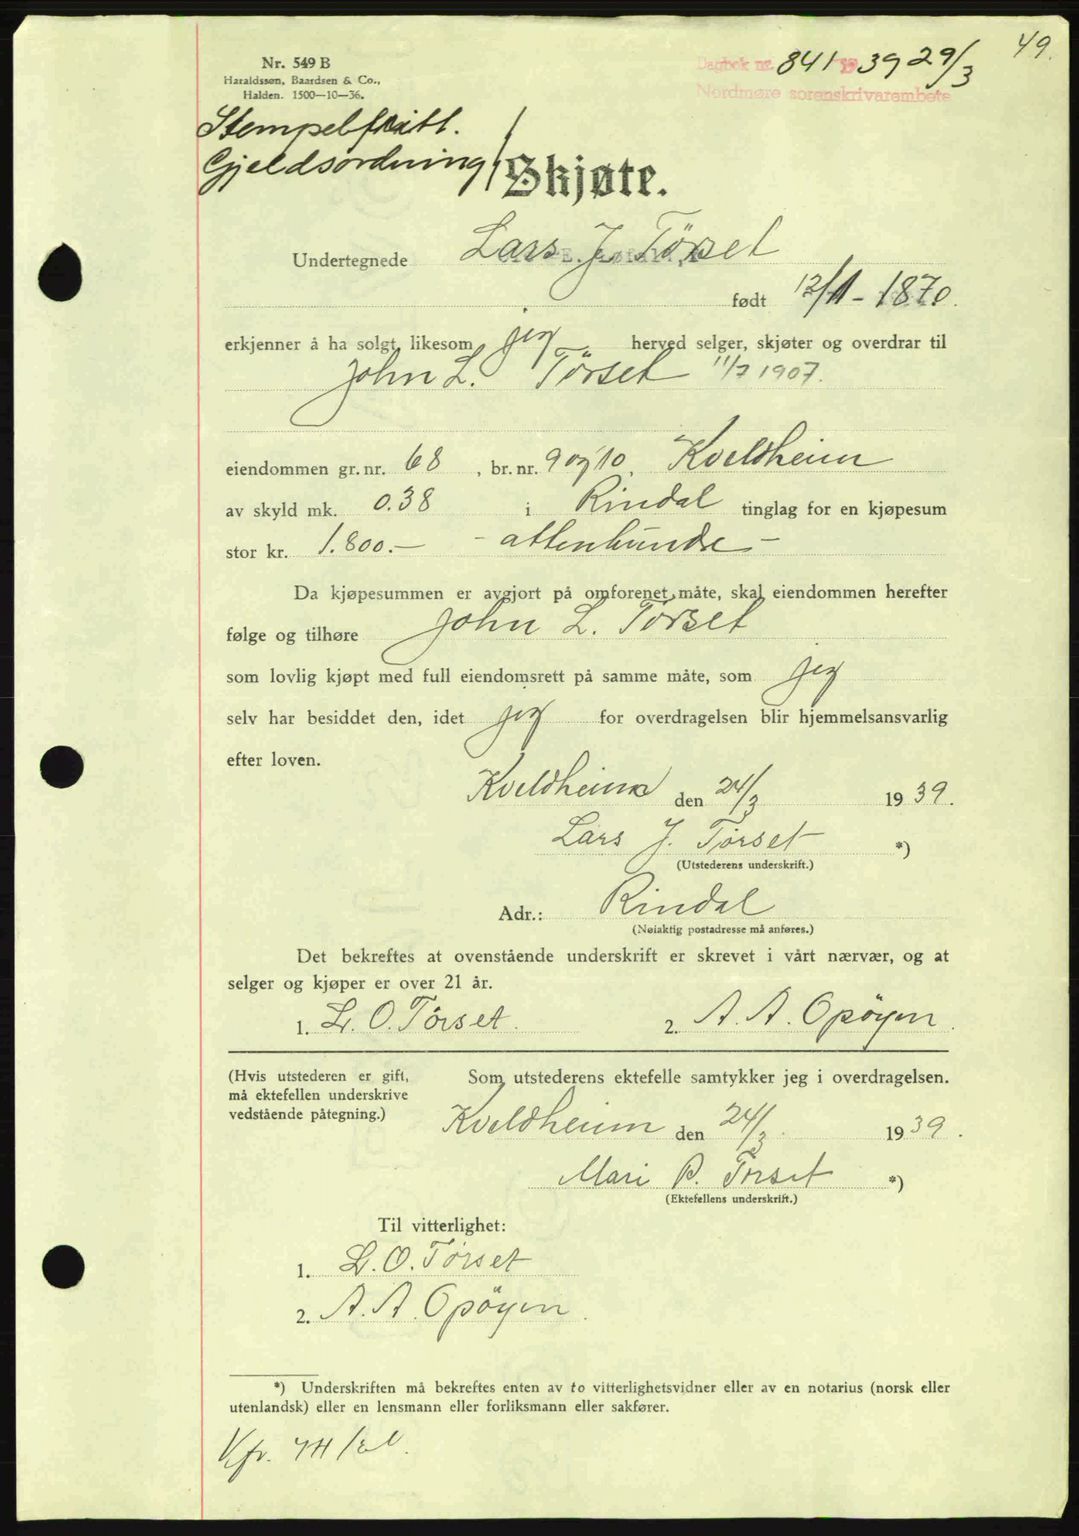 49.
Dagbok nr. 841 1939 29/3
Nordmøre sorenskrivarembete
Nr. 549 B
Haraldssøn, Baardsen & Co.,
Halden. 1500—10—36.
Stempelfritt.
Gjeldsordning
Skjøte.
Undertegnede Lars J. Törset
født 12/11 - 1870.
erkjenner å ha solgt, likesom jeg herved selger, skjøter og overdrar til
John L. Törset 11/7 1907.
eiendommen gr. nr. 68, br. nr. 9 og 10, Kveldheim
av skyld mk. 0.38 i Rindal tinglag for en kjøpesum
stor kr. 1.800.— - attenhundre -
Da kjøpesummen er avgjort på omforenet måte, skal eiendommen herefter
følge og tilhøre John L. Törset
som lovlig kjøpt med full eiendomsrett på samme måte, som jeg
selv har besiddet den, idet jeg for overdragelsen blir hjemmelsansvarlig
efter loven.
Kveldheim den 24/3 1939.
Lars J. Törset *)
(Utstederens underskrift.)
Adr.: Rindal
(Nøiaktig postadresse må anføres.)
Det bekreftes at ovenstående underskrift er skrevet i vårt nærvær, og at
selger og kjøper er over 21 år.
1. L. O. Törset. 2. A. A. Opöyen.
(Hvis utstederen er gift, Som utstederens ektefelle samtykker jeg i overdragelsen.
må ektefellen underskrive
vedstående påtegning.) Kveldheim den 24/3. 1939.
Mari P. Törset *)
(Ektefellens underskrift.)
Til vitterlighet:
1. L. O. Törset
2. A. A. Opöyen.
*) Underskriften må bekreftes enten av to vitterlighetsvidner eller av en notarius (norsk eller
utenlandsk) eller en lensmann eller forliksmann eller sakfører.
Kfr.